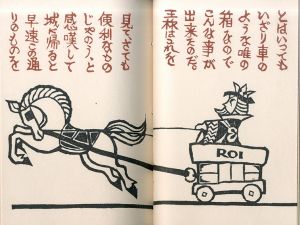 とはいっても
いざり車の
ような唯の
箱なので
こんな事が
出来たのだ。
王様はこれを
ROI
見て、さても
便利なもの
じゃのう、と
感嘆して
城に帰ると
早速この通
りのものを